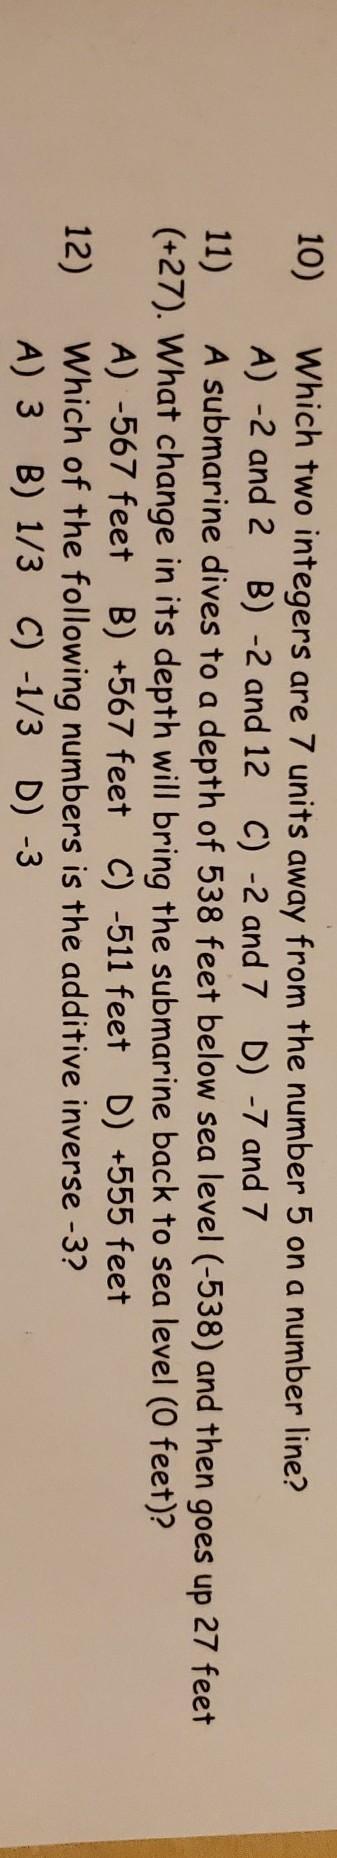 10) Which two integers are 7 units away from the number 5 on a number line?
A) -2 and 2 B) -2 and 12 C) -2 and 7 D) -7 and 7
11) A submarine dives to a depth of 538 feet below sea level (-538) and then goes up 27 feet
(+27). What change in its depth will bring the submarine back to sea level (0 feet)?
A) -567 feet B) +567 feet C) -511 feet D) +555 feet
12) Which of the following numbers is the additive inverse -3?
A) 3 B) 1/3 C) -1/3 D) -3